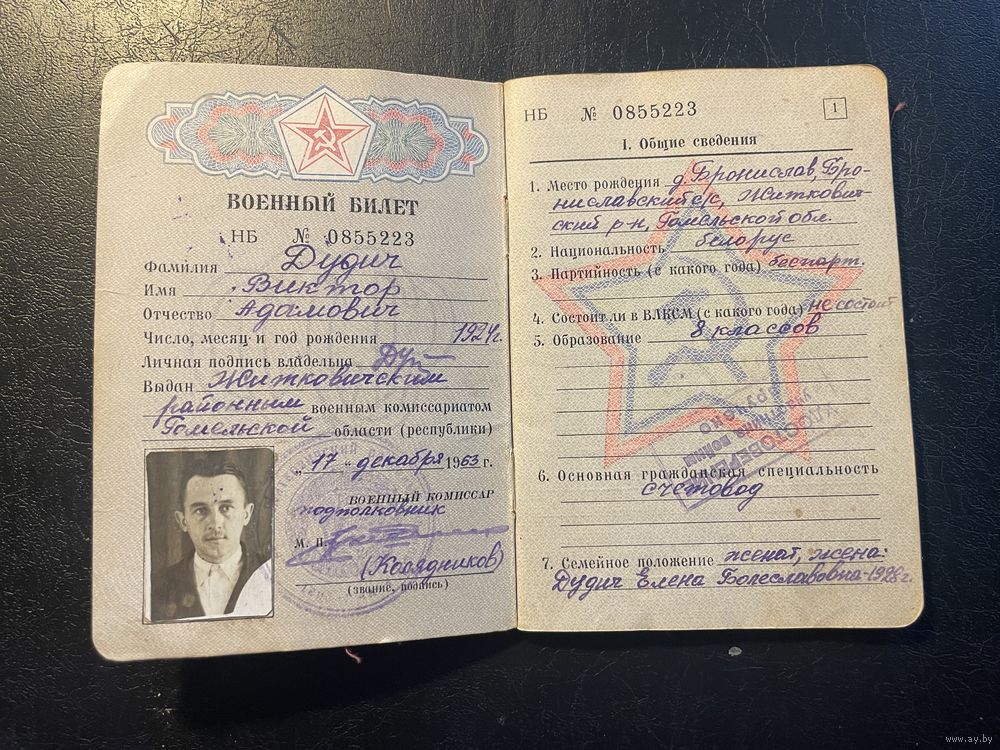 ВОЕННЫЙ БИЛЕТ
НБ № 0855223
Фамилия Дудич
Имя Виктор
Отчество Адамович
Число, месяц и год рождения 1924г.
Личная подпись владельца
Выдан Житковичским
районным военным комиссариатом
Гомельской области (республики)
„17“ декабря 1963 г.
ВОЕННЫЙ КОМИССАР
подполковник
М. П.
(Колядников)
(звание, подпись)
НБ № 0855223
1
I. Общие сведения
1. Место рождения д. Бронислав, Бро-
ниславский с/с, Житкович-
ский р-н, Гомельской обл.
2. Национальность белорус
3. Партийность (с какого года) беспарт.
4. Состоит ли в ВЛКСМ (с какого года) не состоит
5. Образование 8 классов
УДОСТОВЕРЕНИЕ
участника войны
6. Основная гражданская специальность
счетовод
7. Семейное положение женат, жена:
Дудич Елена Болеславовна-1928г.
www.ay.by